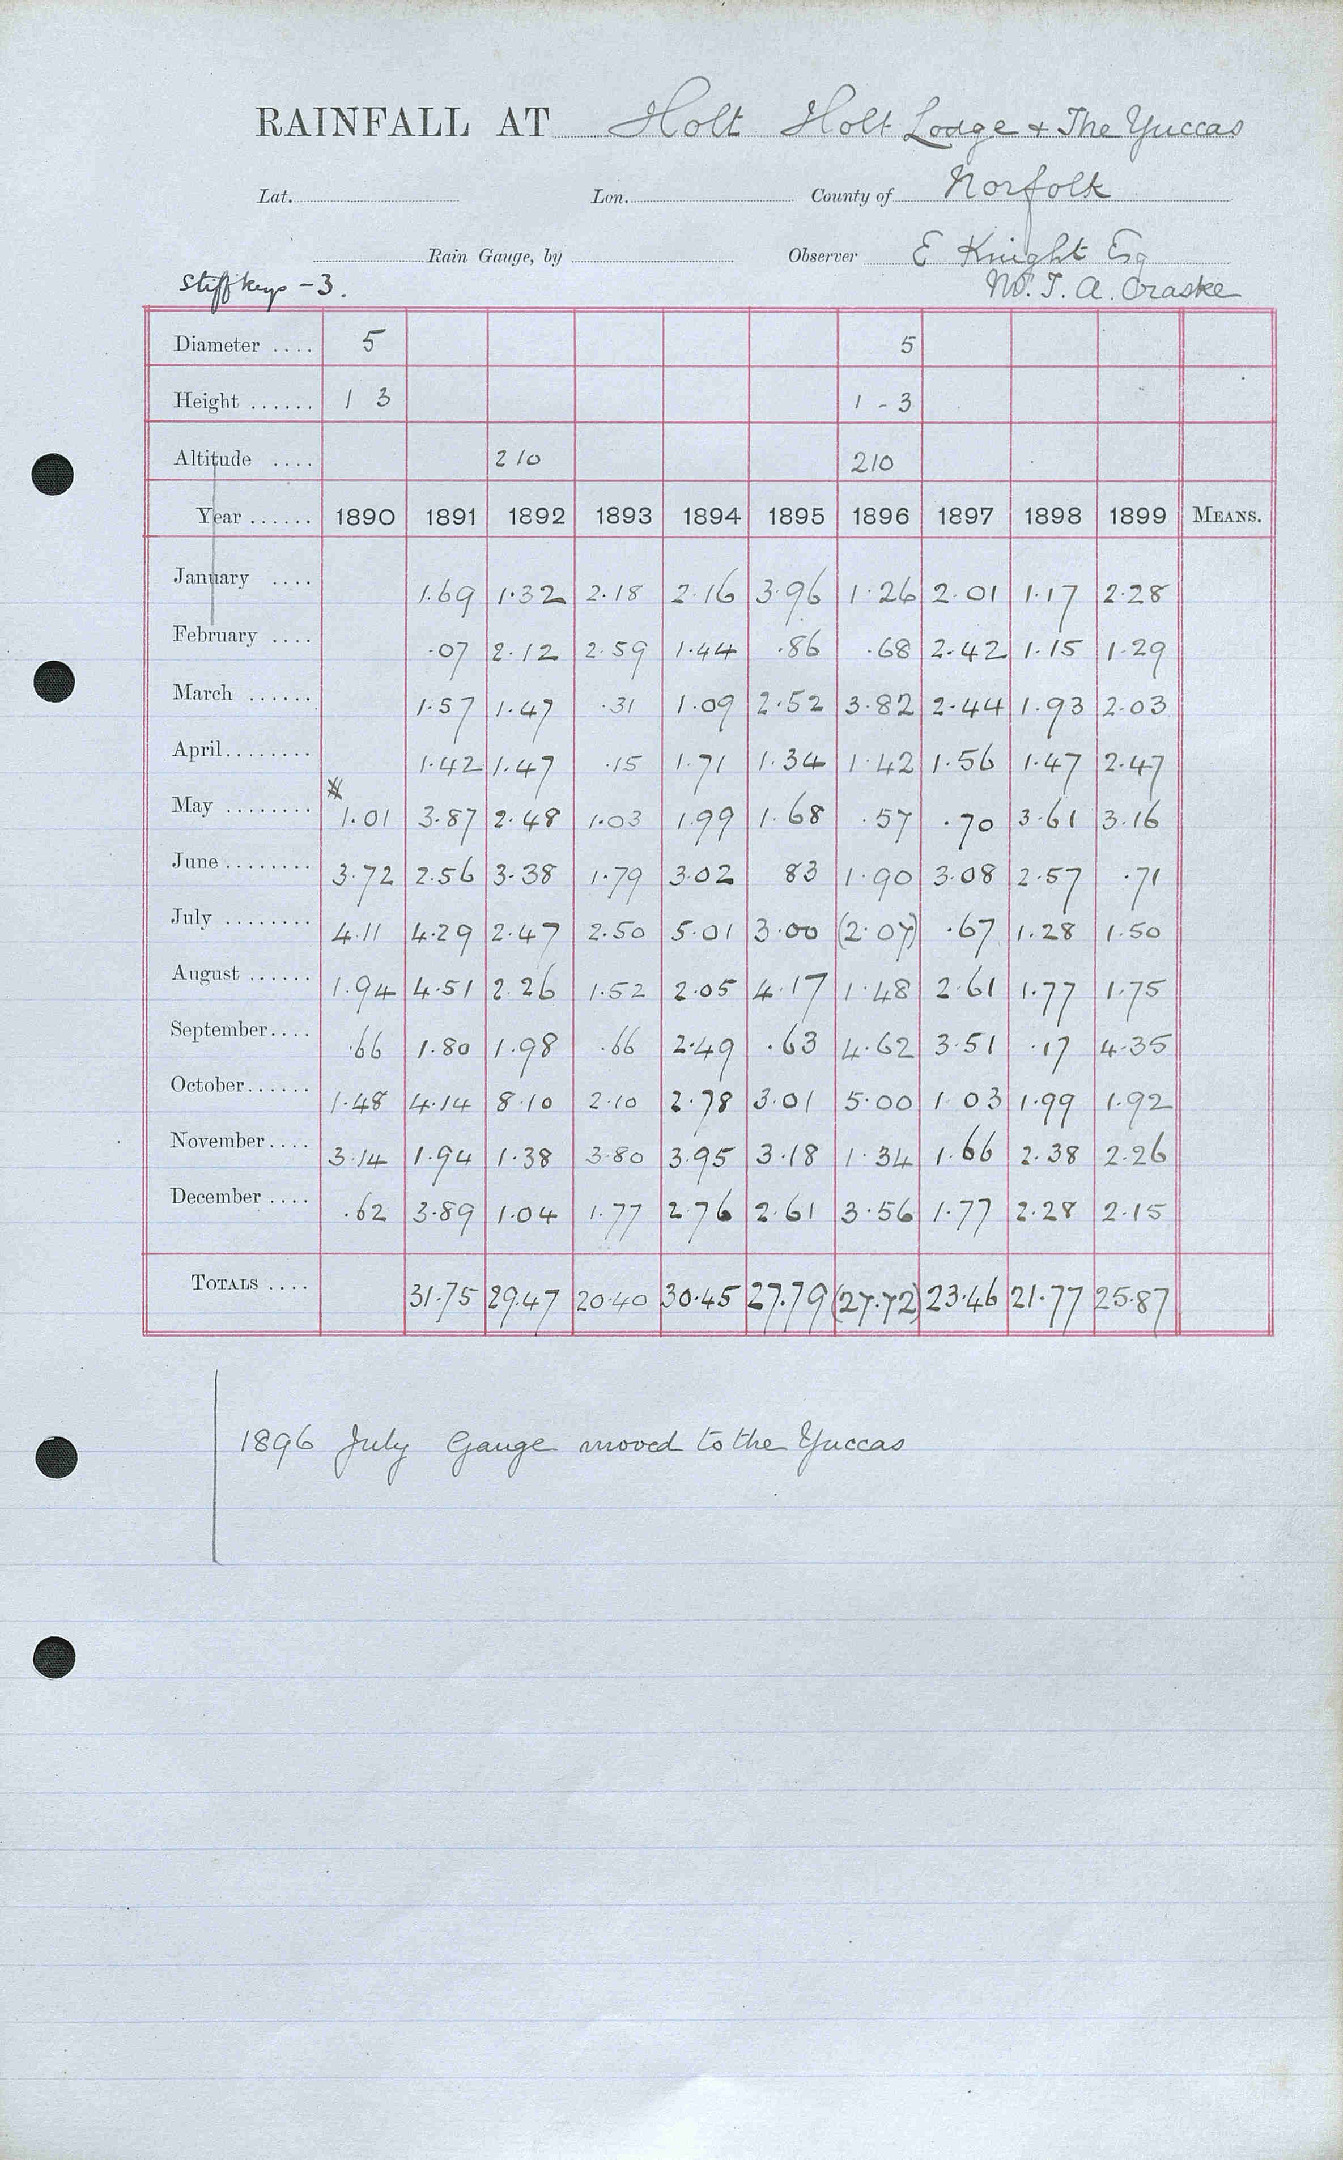 RAINFALL AT Holt Holt Lodge + The Yuccas
Lat. Lon. County of Norfolk
Rain Gauge, by Observer E Knight Esq
Stiffkeys - 3. W. T. A. Craske
Diameter .... 5 5
Height ...... 1 3 1 - 3
Altitude .... 210 210
Year ...... 1890 1891 1892 1893 1894 1895 1896 1897 1898 1899 MEANS.
January .... 1.69 1.32 2.18 2.16 3.96 1.26 2.01 1.17 2.28
February .... .07 2.12 2.59 1.44 .86 .68 2.42 1.15 1.29
March ...... 1.57 1.47 .31 1.09 2.52 3.82 2.44 1.93 2.03
April........ 1.42 1.47 .15 1.71 1.34 1.42 1.56 1.47 2.47
May ........ 1.01 3.87 2.48 1.03 1.99 1.68 .57 .70 3.61 3.16
June ........ 3.72 2.56 3.38 1.79 3.02 83 1.90 3.08 2.57 .71
July ........ 4.11 4.29 2.47 2.50 5.01 3.00 (2.07) .67 1.28 1.50
August ...... 1.94 4.51 2.26 1.52 2.05 4.17 1.48 2.61 1.77 1.75
September.... .66 1.80 1.98 .66 2.49 .63 4.62 3.51 .17 4.35
October...... 1.48 4.14 8.10 2.10 2.78 3.01 5.00 1 03 1.99 1.92
November.... 3.14 1.94 1.38 3.80 3.95 3.18 1.34 1.66 2.38 2.26
December .... .62 3.89 1.04 1.77 2.76 2.61 3.56 1.77 2.28 2.15
TOTALS .... 31.75 29.47 20.40 30.45 27.79 (27.72) 23.46 21.77 25.87
1896 July Gauge moved to the Yuccas